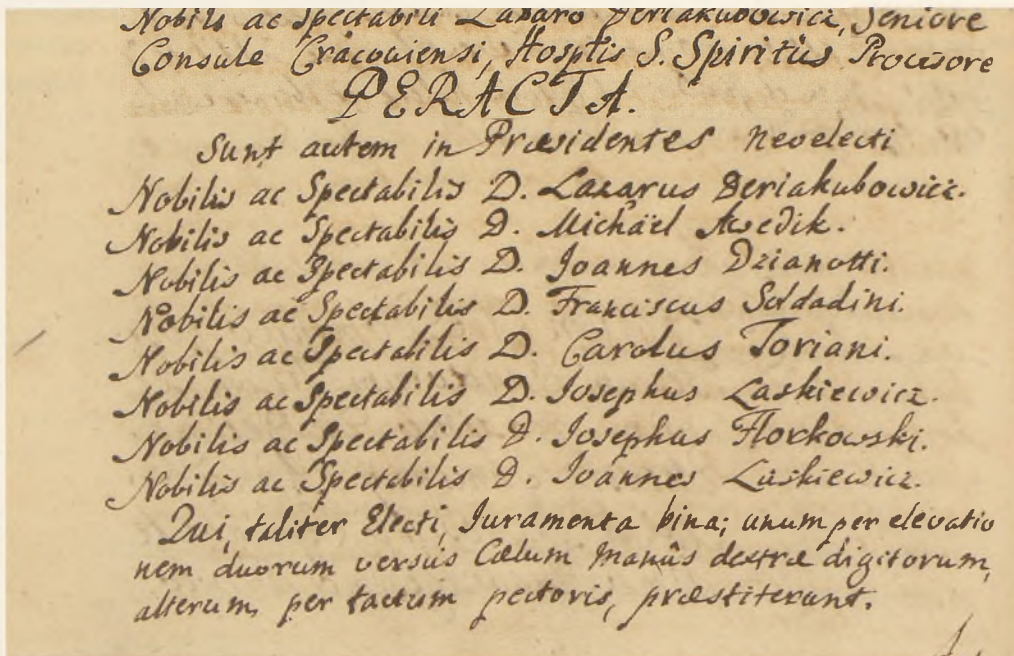 Nobili ac Spectabili Lazaro Deriakubowicz, Seniore
Consule Cracoviensi, Hosptis S. Spiritûs Provisore
PERACTA.
Sunt autem in Præsidentes neoelecti
Nobilis ac Spectabilis D. Lazarus Deriakubowicz.
Nobilis ac Spectabilis D. Michäel Awedik.
Nobilis ac Spectabilis D. Joannes Dzianotti.
Nobilis ac Spectabilis D. Franciscus Soldadini.
Nobilis ac Spectabilis D. Carolus Toriani.
Nobilis ac Spectabilis D. Josephus Laskiewicz.
Nobilis ac Spectabilis D. Josephus Florkowski.
Nobilis ac Spectabilis D. Joannes Laskiewicz.
Qui, taliter Electi, Juramenta bina; unum per elevatio
nem duorum versus Cælum manûs dextræ digitorum,
alterum, per tactum pectoris, præstiterunt.